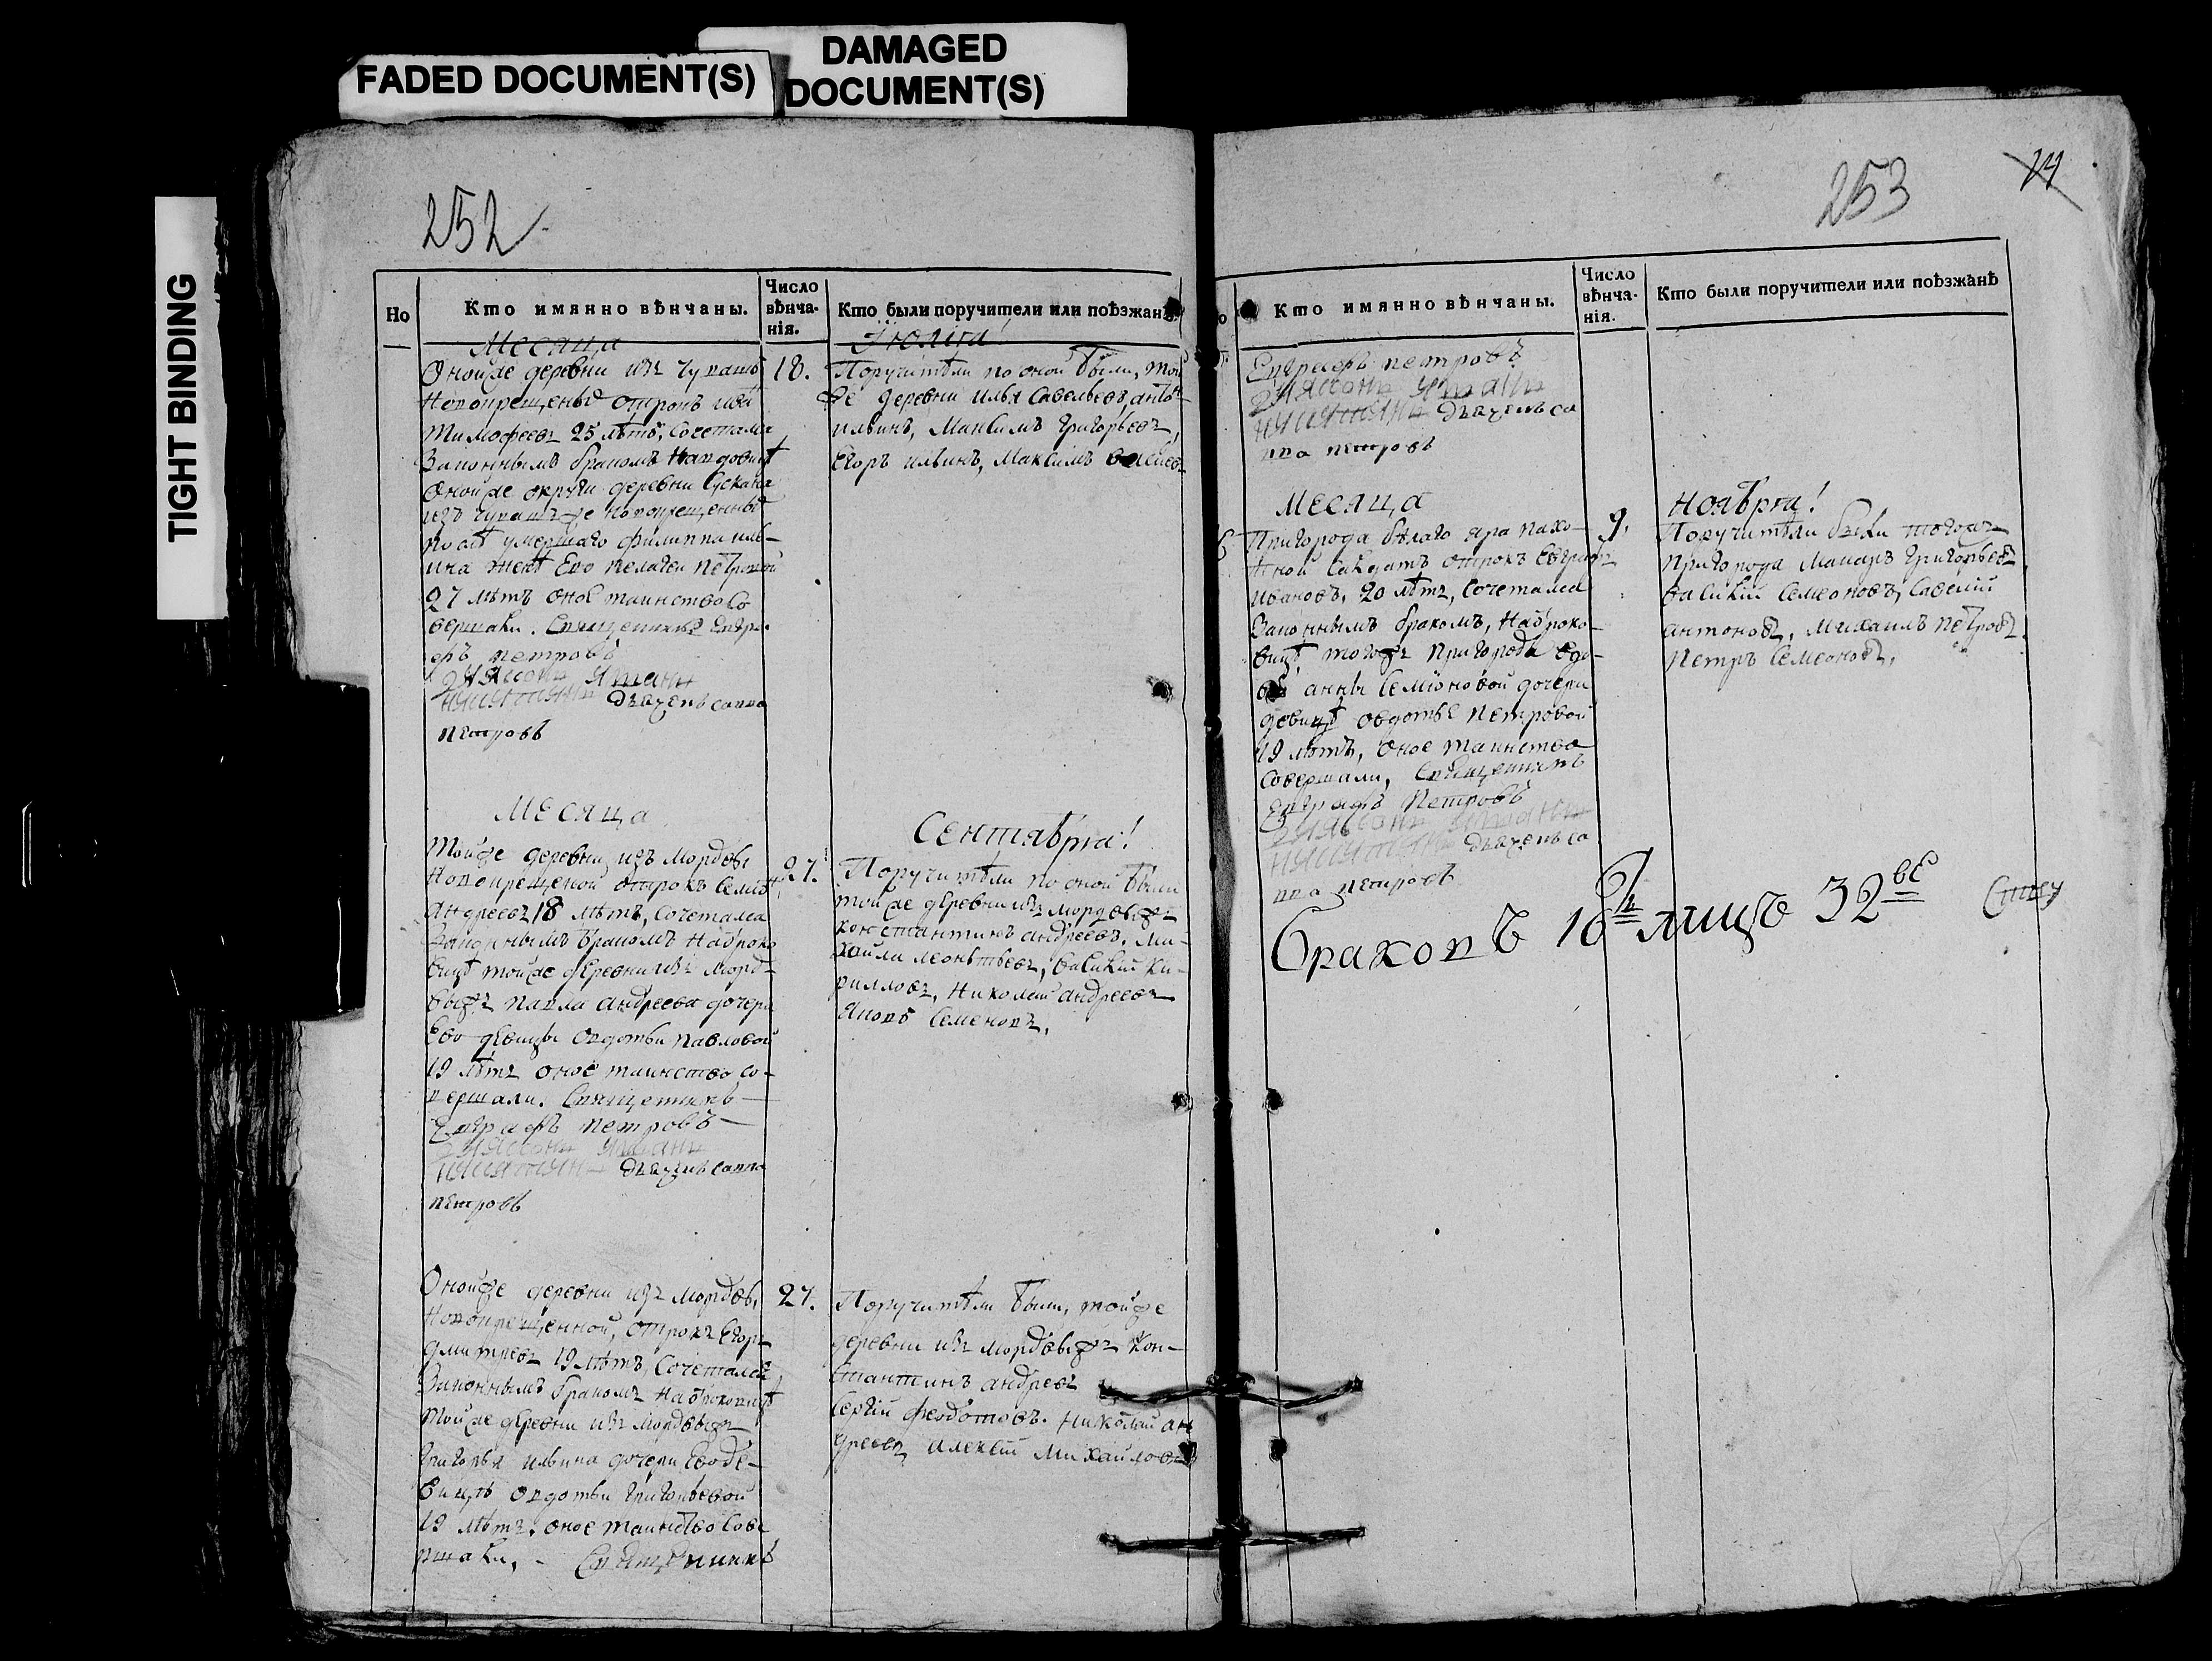 FADED DOCUMENT(S)
DAMAGED
DOCUMENT(S)
TIGHT BINDING
252
Но
Кто имянно вѣнчаны.
Число
вѣнча-
нія.
Кто были поручители или поѣзжанѣ
Месяца
Июлiя!
Оной же деревни изъ Чувашъ
18.
Новокрещеный отрокъ
Тимофеевъ 25 лѣтъ, сочетался
Законнымъ бракомъ На вдовицѣ
Оной же округи деревни
изъ Чувашъ же новокрещенныхъ
После умершаго Филиппа Иль-
ина женѣ Ево Пелагеи Петровой
27 лѣтъ оное таинство Со
вершали. Священникъ Евгра-
фъ Петровъ
дьячекъ Савва
Петровъ
Поручители по оной были, той
же деревни Илья Савельевъ, Анто
Ильинъ, Максимъ Григорьевъ,
Егоръ Ильинъ, Максимъ
Месяца
Сентября!
Той же деревни изъ Мордвы
27.
Новокрещеной Отрокъ Семи
Андреевъ 18 лѣтъ, сочетался
Законнымъ бракомъ На отроко
вицѣ той же деревни изъ Морд-
вы жъ Павла Андреева дочери
Ево девицы Овдотьи Павловой
19 лѣтъ оное таинство со-
вершали. Священникъ
Евграфъ Петровъ
дьячекъ Савва
Петровъ
Поручители по оной были
той же деревни изъ мордвы жъ
Константинъ Андреевъ, Ми-
хайла Леонтьевъ, Василий Ки-
рилловъ, Николай Андреевъ
Яковъ Семеновъ,
Оной же деревни изъ мордвы,
27.
Новокрещенной, Отрокъ Егоръ
Дмитревъ 19 лѣтъ, Сочетался
Законнымъ бракомъ На отроковицѣ
той же деревни изъ Мордвы жъ
Григорья Ильина дочери Ево де-
вицѣ Овдотьи Григорьевой
19 лѣтъ, оное таинство Сове
ршали, - Священникъ
Поручители были, той же
деревни изъ мордвы жъ Кон-
стантинъ Андревъ
Сергий Федотовъ. Николай Ан
дреевъ Алексей Михайловъ
253
24
Кто имянно вѣнчаны.
Число
вѣнча-
нія.
Кто были поручители или поѣзжанѣ
Евграфъ Петровъ
дьячекъ Са
вва Петровъ
Месяца
Ноября!
Пригорода Белаго Яра пахо-
9.
тной Салдатъ отрокъ Евграфъ
Ивановъ, 20 лѣтъ, сочетался
Законнымъ бракомъ, На отроко-
вицѣ того жъ Пригорода вдо-
вы Анны Семионовой дочери
девицѣ Овдотье Петровой
19 лѣтъ, оное таинство
совершали, Священникъ
Евграфъ Петровъ
дьячекъ Са
вва Петровъ
Поручители были того жъ
Пригорода Макаръ Григорьевъ
Василий Семеоновъ, Савелий
Антоновъ, Михаилъ Петровъ
Петръ Семеоновъ,
Браковъ 16ть лицъ 32ве